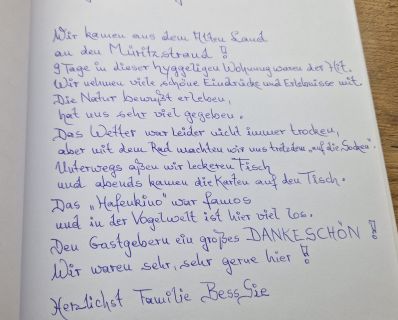 Wir kamen aus dem Alten Land
an den Müritzstrand !
9 Tage in dieser hyggeligen Wohnung waren der Hit.
Wir nehmen viele schöne Eindrücke und Erlebnisse mit.
Die Natur bewußt erleben,
hat uns sehr viel gegeben.
Das Wetter war leider nicht immer trocken,
aber mit dem Rad machten wir uns trotzdem „auf die Socken".
Unterwegs aßen wir leckeren Fisch
und abends kamen die Karten auf den Tisch.
Das „Hafenkino" war famos
und in der Vogelwelt ist hier viel los.
Den Gastgebern ein großes DANKESCHÖN !
Wir waren sehr, sehr gerne hier !
Herzlichst Familie